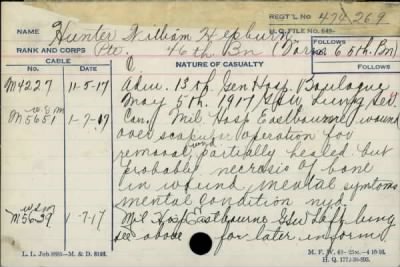 REGT'L NO 474269
H.Q. FILE NO. 649-
NAME Hunter William Hepburn
RANK AND CORPS Pte. 46th Bn (Form 65th Bn)
FOLLOWS
FOLLOWS
CABLE
NO. DATE NATURE OF CASUALTY
M4227 11-5-17 Adm. 13th Gen Hosp. Boulogne
May 5th, 1917 GSW Lung Sev.
M5651 1-7-17 Can. Mil Hosp Eastbourne wound
over scapula operation for
removal wound partially healed but
probably necrosis of bone
in wound mental symtoms
mental condition nyd.
M5629 1-7-17 Mil Hosp Eastbourne GSW Left lung
see above for later inform
L. L. Job 8993—M. & D. 8163.
M. F. W. 42-
H. Q. 1772-39-893.